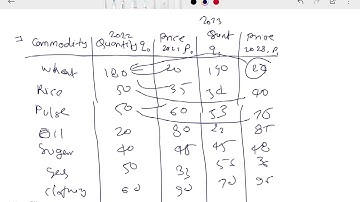 2022 2023
Commodity Quantity q0 Price 2022 P0 Quant q1 Price 2023, P1
wheat 120 20 190 29
Rice 50 35 52 40
Pulse 50 60 53 75
Oil 20 80 22 85
Sugar 40 45 45 48
Gas 50 33 55 36
Clothing 60 90 70 95